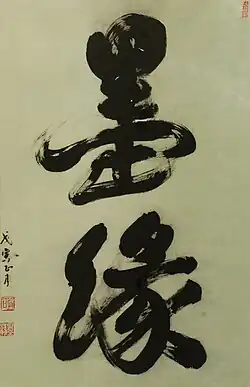 墨緣
戊寅正月